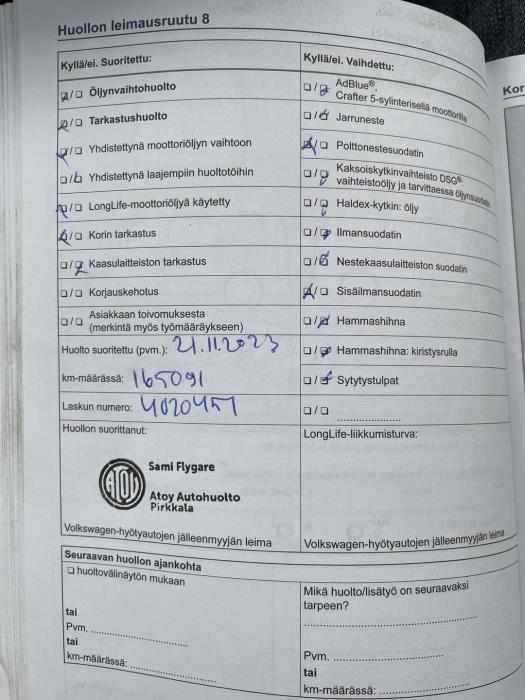 Huollon leimausruutu 8
Kyllä/ei. Suoritettu:
☑/☐ Öljynvaihtohuolto
☑/☐ Tarkastushuolto
☑/☐ Yhdistettynä moottoriöljyn vaihtoon
☐/☑ Yhdistettynä laajempiin huoltotöihin
☑/☐ LongLife-moottoriöljyä käytetty
☑/☐ Korin tarkastus
☐/☑ Kaasulaitteiston tarkastus
☐/☐ Korjauskehotus
☐/☐ Asiakkaan toivomuksesta
(merkintä myös työmääräykseen)
Huolto suoritettu (pvm.): 21.11.2023
km-määrässä: 165091
Laskun numero: 4020457
Huollon suorittanut:
Sami Flygare
ATOY
Atoy Autohuolto
Pirkkala
Volkswagen-hyötyautojen jälleenmyyjän leima
Kyllä/ei. Vaihdettu:
☐/☑ AdBlue®,
Crafter 5-sylinterisellä moottorilla
☐/☑ Jarruneste
☑/☐ Polttonestesuodatin
☐/☑ Kaksoiskytkinvaihteisto DSG®:
vaihteistoöljy ja tarvittaessa öljynsuodatin
☐/☑ Haldex-kytkin: öljy
☐/☑ Ilmansuodatin
☐/☑ Nestekaasulaitteiston suodatin
☑/☐ Sisäilmansuodatin
☐/☑ Hammashihna
☐/☑ Hammashihna: kiristysrulla
☐/☑ Sytytystulpat
☐/☐ ....................
LongLife-liikkumisturva:
Volkswagen-hyötyautojen jälleenmyyjän leima
Seuraavan huollon ajankohta
☐ huoltovälinäytön mukaan
tai
Pvm. ..............................
tai
km-määrässä: ..........................
Mikä huolto/lisätyö on seuraavaksi
tarpeen?
........................................
Pvm. ..............................
tai
km-määrässä: ..........................
Kor